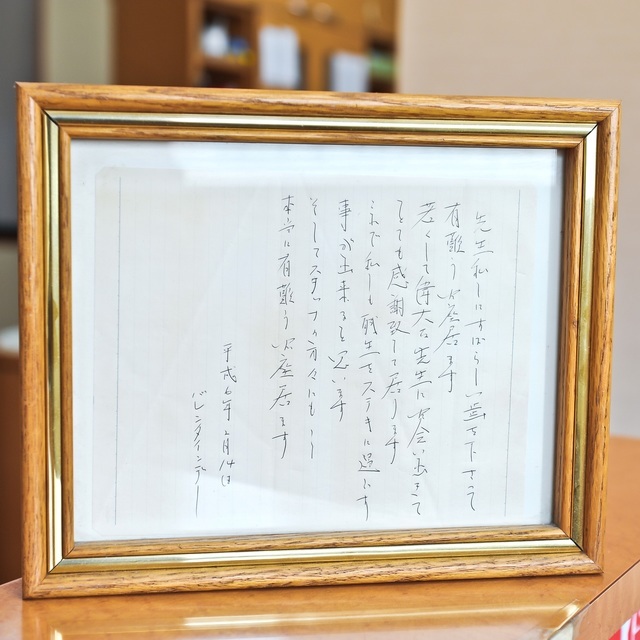 先生私しにすばらしい歯を下さって
有難う御座居ます
若くして偉大な先生にお会い出来て
とても感謝致して居ります
これで私しも 生をステキに過ごす
事が出来ると思います
そしてスタッフの方々にも
本当に有難う御座居ます
平成6年2月14日
バレンタインデー